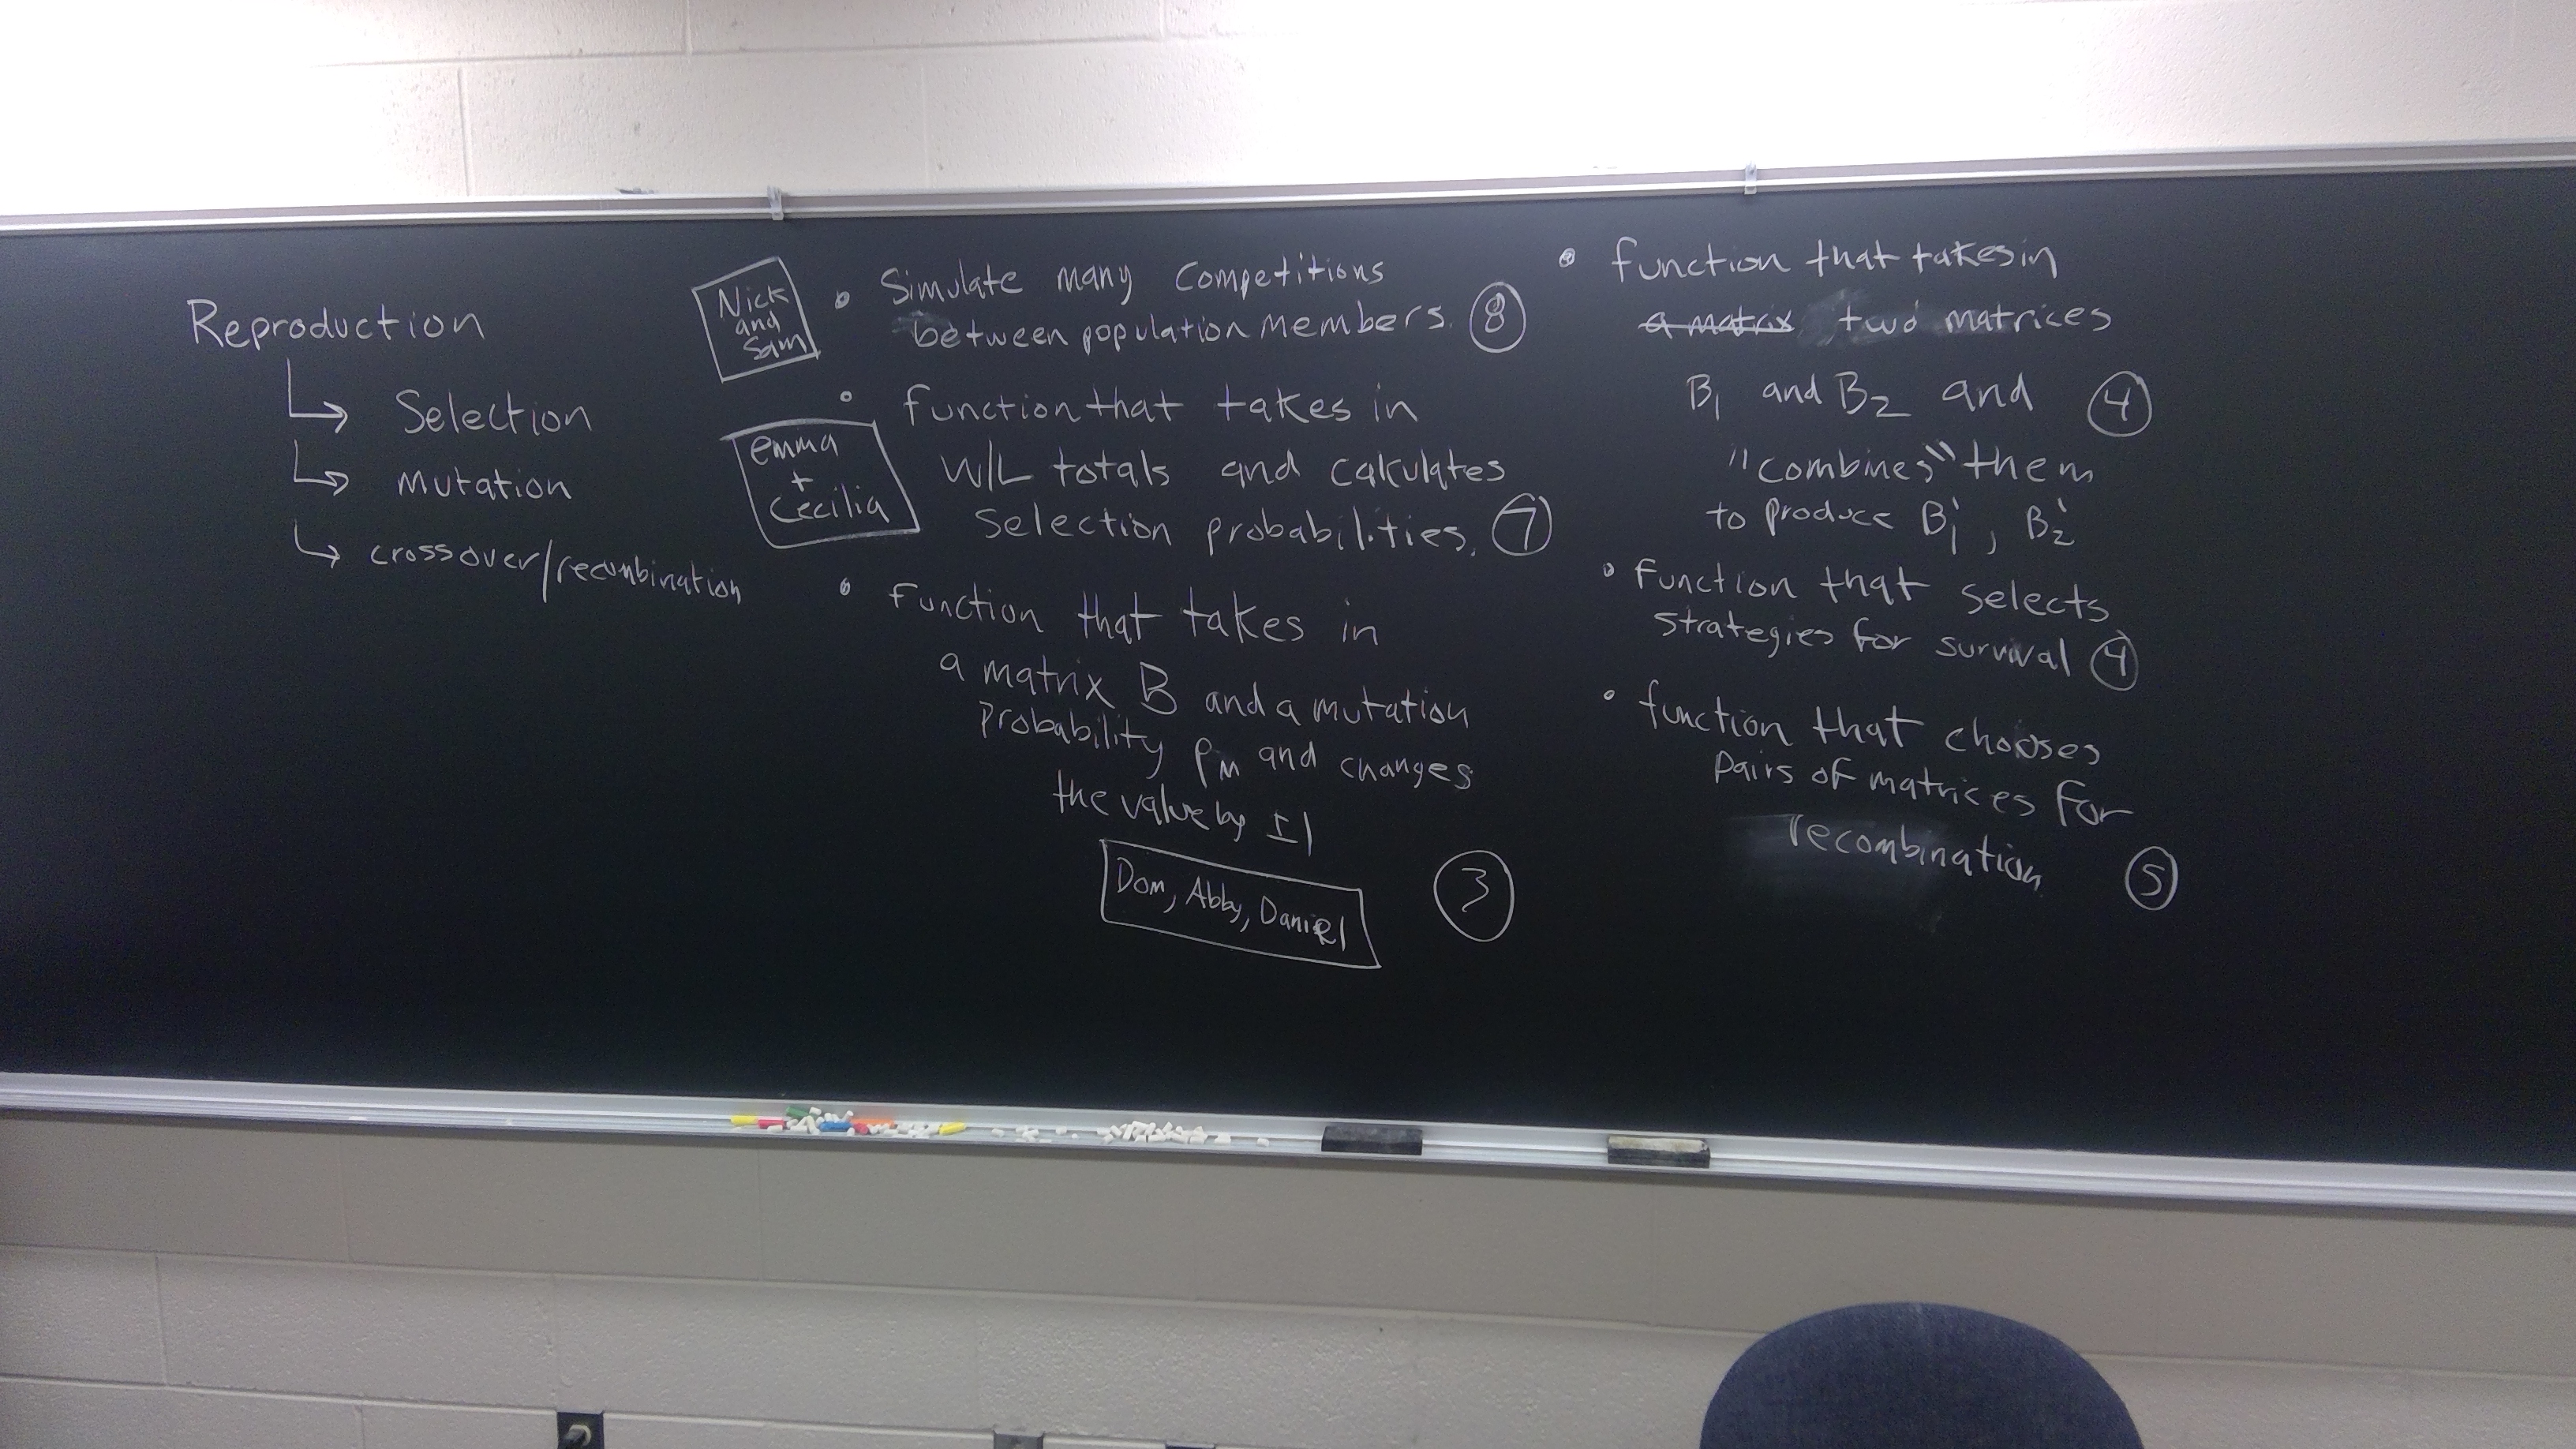 Reproduction
↳ Selection
↳ mutation
↳ crossover/recombination
Nick
and
Sam
• Simulate many competitions
between population members. ⑧
emma
+
Cecilia
• function that takes in
W/L totals and calculates
Selection probabilities. ⑦
• function that takes in
a matrix B and a mutation
probability PM and changes
the value by ±1
Dom, Abby, Daniel
③
• function that takes in
~~a matrix~~ two matrices
B₁ and B₂ and ④
"combines" them
to produce B₁', B₂'
• function that selects
strategies for survival ④
• function that chooses
pairs of matrices for
recombination ⑤